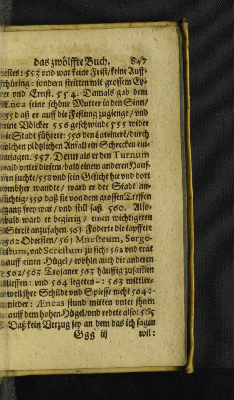 das zwölffte Buch. 847
restes: 553 und war keine Frist/ keine Auff-
schürung: sondern stritten mit grossem Ey-
ver und Ernst. 554. Damals gab dem
Ænea seine schöne Mutter in den Sinn/
555 daß er auff die Festung zugienge/ und
seine Völcker 556 geschwinde 555 wider
die Stadt führete: 556 und die Lateiner/ durch
solchen plötzlichen Anfall ein Schrecken ein-
zujagen. 557. Denn als er den Turnum
bald unter diesem/ bald einem anderen Hauf-
fen suchte/ 558 und sein Gesicht hin und dort
umbher wandte/ ward er der Stadt an-
sichtig/ 559 daß sie von dem grossen Treffen
gantz frey war/ und still saß. 560. Also-
bald ward er begierig/ einen wichtigeren
Streit anzufahen. 561 Foderte die tapffere
562 Obersten/ 561 Mnestheum, Serge-
stum, und Serestum zu sich: 562 und trat
auff einen Hügel/ wohin auch die anderen
562/ 563 Trojaner 563 häuffig zusammen
lieffen: und 564 legten-: 563 mittler-
weil ihre Schilde und Spiesse nicht 564 -:
nieder: Æneas stund mitten unter ihnen
auff dem hohen Hügel/ und redete also: 565
Daß kein Verzug sey an dem das ich sagen
Ggg iij wil: